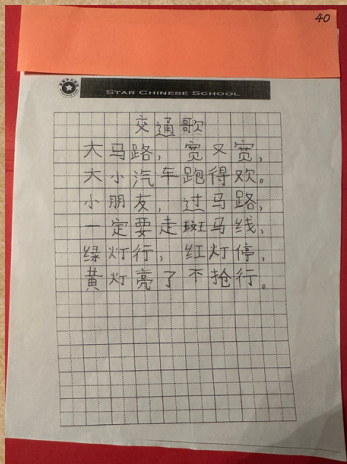 40
STAR CHINESE SCHOOL
交通歌
大马路，宽又宽，
大小汽车跑得欢。
小朋友，过马路，
一定要走斑马线，
绿灯行，红灯停，
黄灯亮了不抢行。